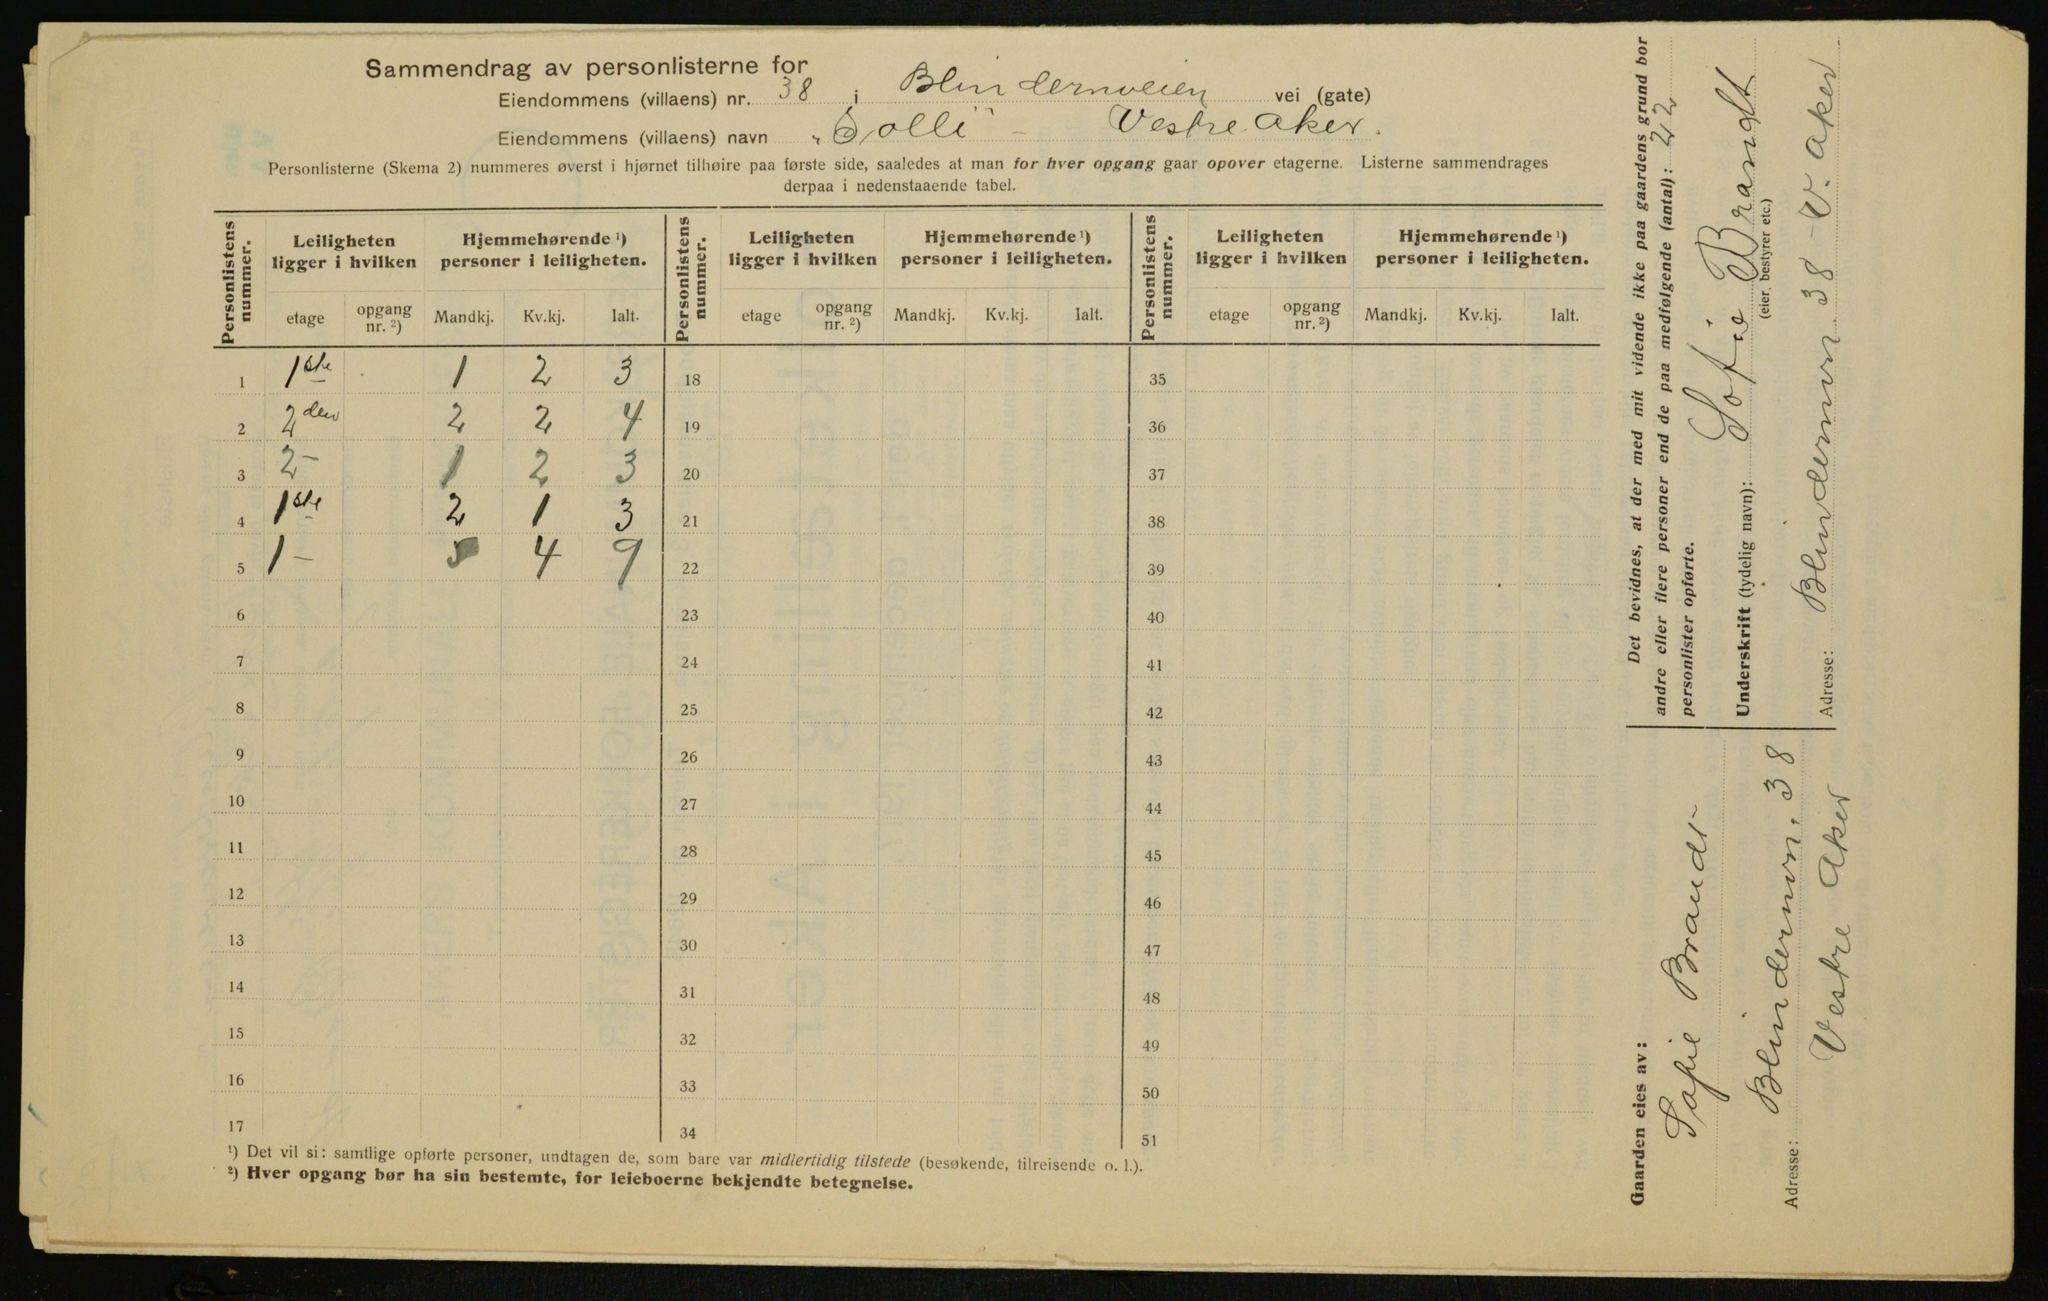 Sammendrag av personlisterne for
Eiendommens (villaens) nr. 38 i Blindernveien vei (gate)
Eiendommens (villaens) navn „Solli" - Vestre Aker.
Personlisterne (Skema 2) nummeres øverst i hjørnet tilhøire paa første side, saaledes at man for hver opgang gaar opover etagerne. Listerne sammendrages
derpaa i nedenstaaende tabel.
Personlistens nummer. Leiligheten ligger i hvilken Hjemmehørende ¹) personer i leiligheten. Personlistens nummer. Leiligheten ligger i hvilken Hjemmehørende ¹) personer i leiligheten. Personlistens nummer. Leiligheten ligger i hvilken Hjemmehørende ¹) personer i leiligheten.
etage opgang nr. ²) Mandkj. Kv.kj. Ialt. etage opgang nr. ²) Mandkj. Kv.kj. Ialt. etage opgang nr. ²) Mandkj. Kv.kj. Ialt.
1 1ste 1 2 3 18 35
2 2den 2 2 4 19 36
3 2- 1 2 3 20 37
4 1ste 2 1 3 21 38
5 1- 5 4 9 22 39
6 23 40
7 24 41
8 25 42
9 26 43
10 27 44
11 28 45
12 29 46
13 30 47
14 31 48
15 32 49
16 33 50
17 34 51
¹) Det vil si: samtlige opførte personer, undtagen de, som bare var midlertidig tilstede (besøkende, tilreisende o. l.).
²) Hver opgang bør ha sin bestemte, for leieboerne bekjendte betegnelse.
Det bevidnes, at der med mit vidende ikke paa gaardens grund bor
andre eller flere personer end de paa medfølgende (antal): 22
personlister opførte.
Underskrift (tydelig navn): Sofie Brandt
(eier, bestyrer etc.)
Adresse: Blindernvn. 38 - V. Aker
Gaarden eies av:
Sofie Brandt
Adresse: Blindernvn. 38
Vestre Aker